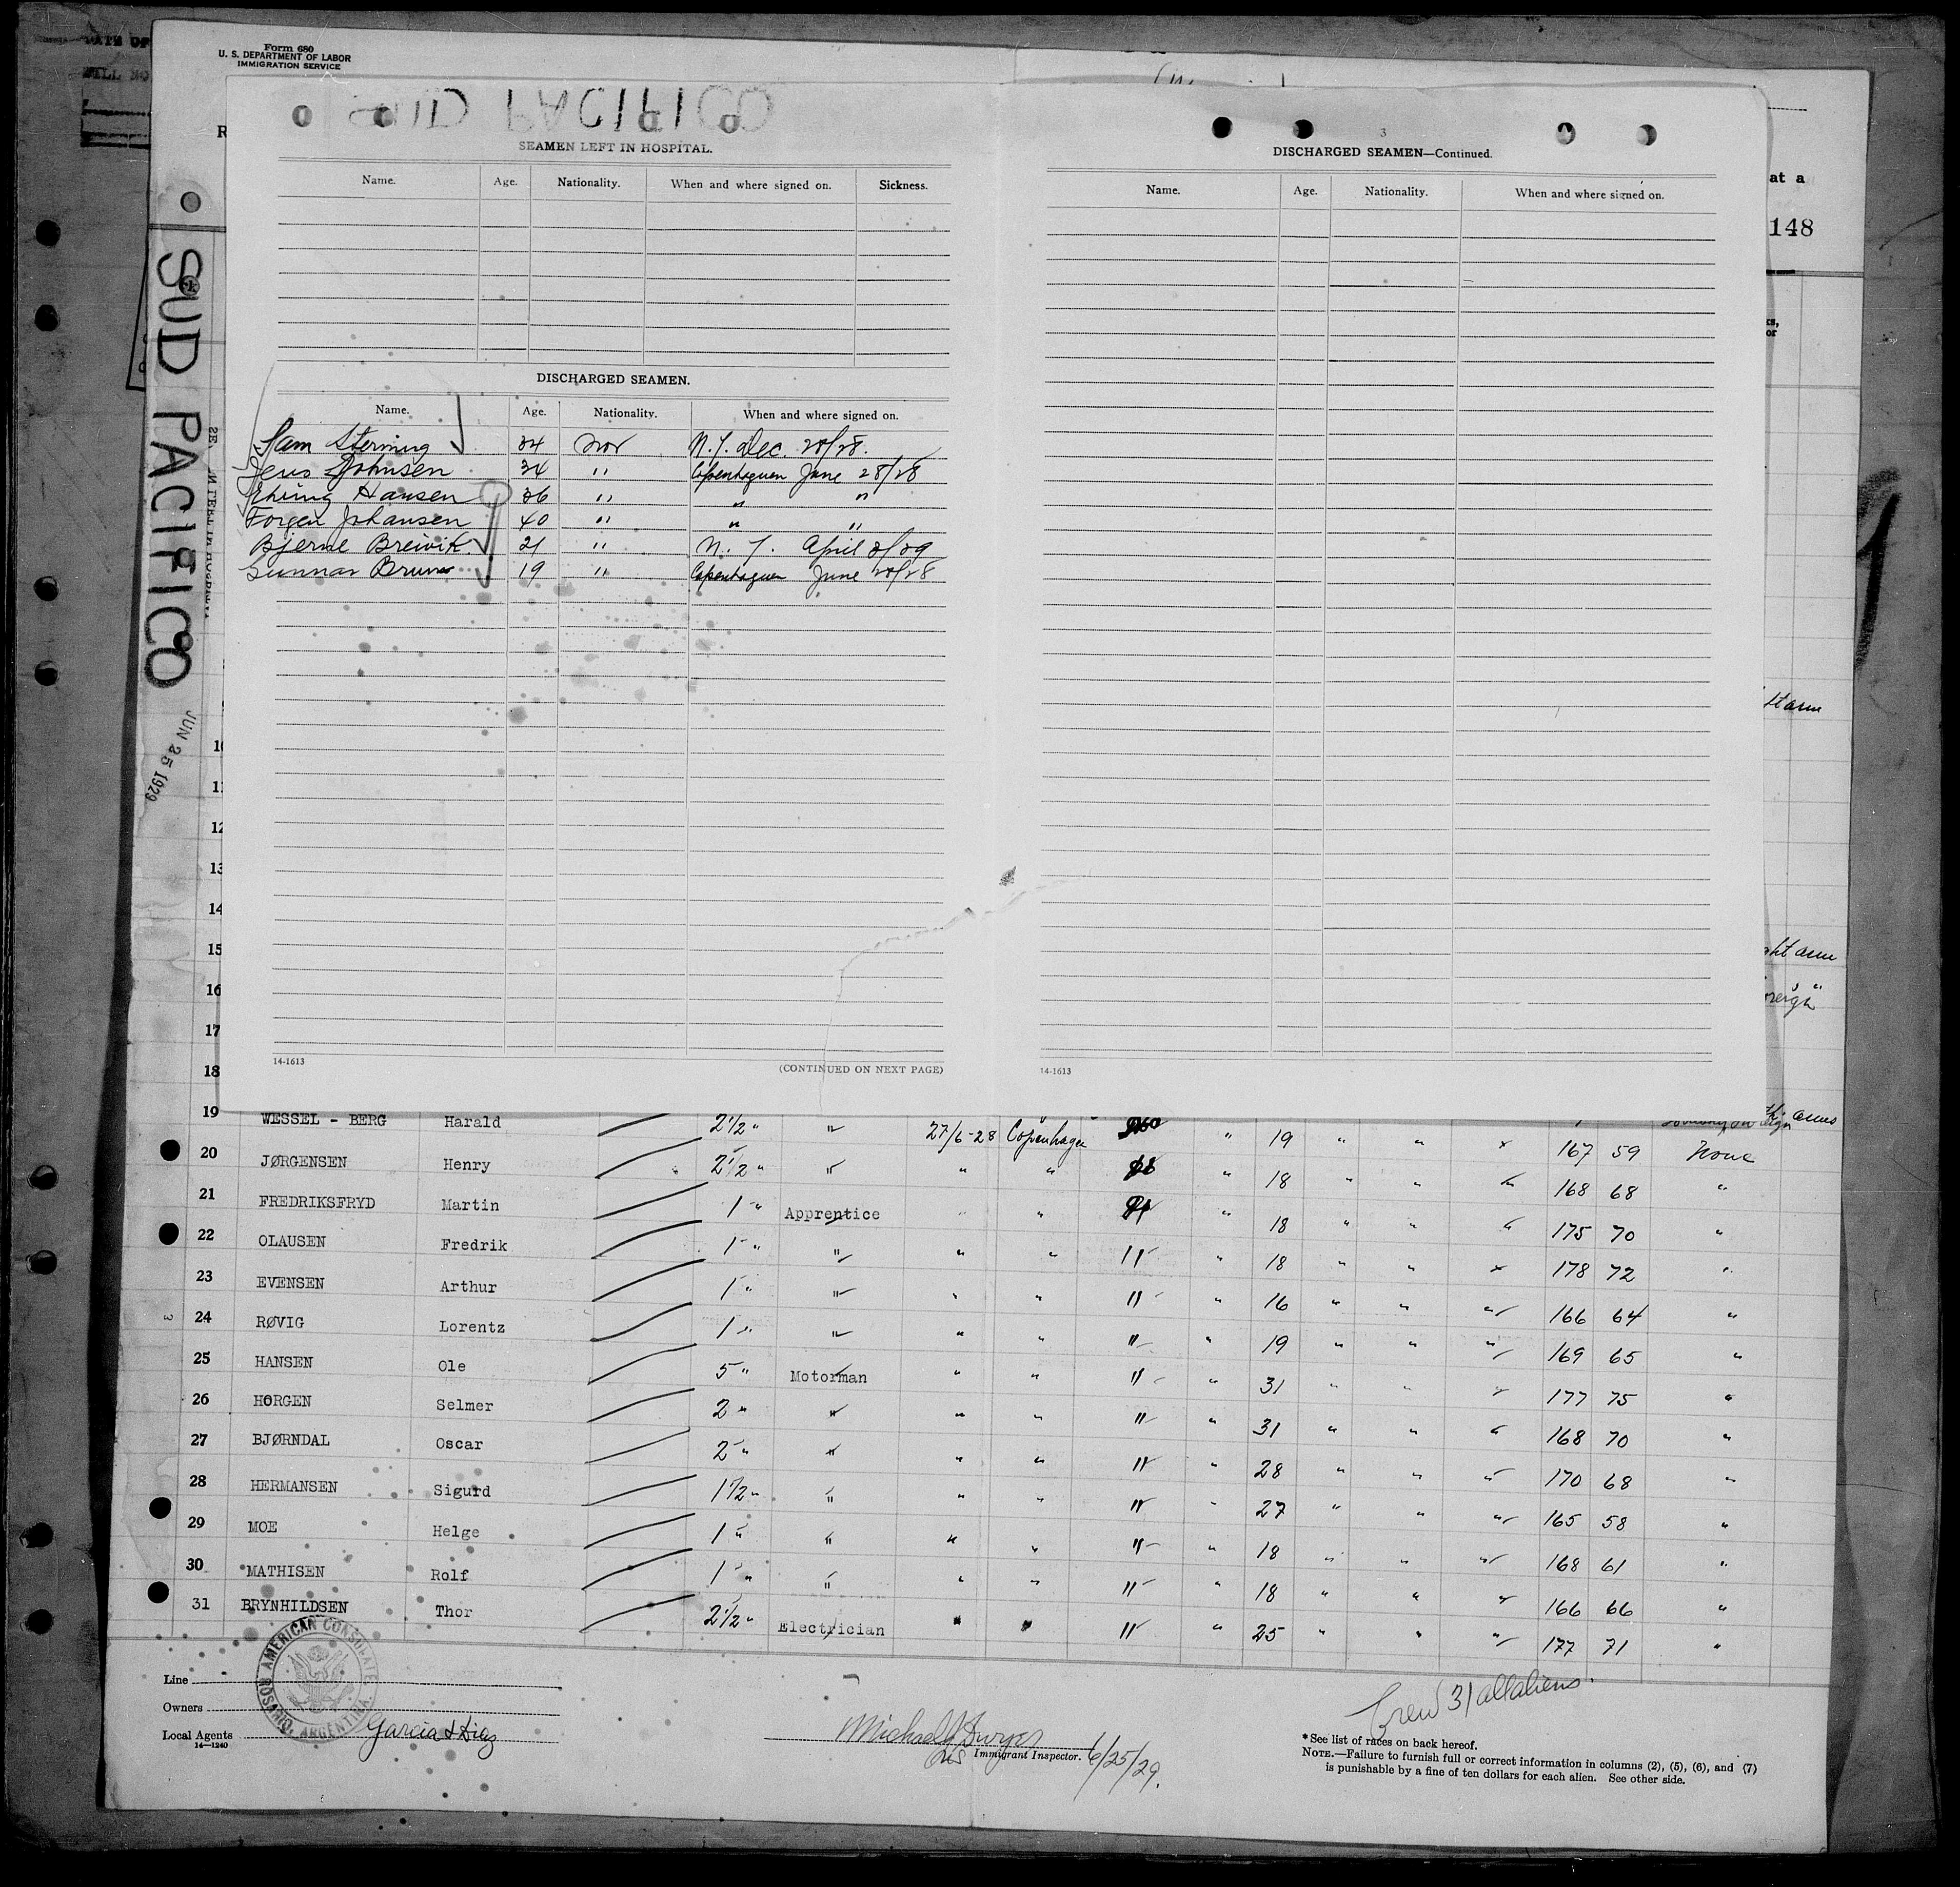 Form 680
U. S. DEPARTMENT OF LABOR
IMMIGRATION SERVICE
SUD PACIFICO
SEAMEN LEFT IN HOSPITAL.
Name. Age. Nationality. When and where signed on. Sickness.
DISCHARGED SEAMEN.
Name. Age. Nationality. When and where signed on.
34 Nor N.Y. Dec. 28/28.
Jens Johnsen 34 " Copenhaguen June 28/28
Hansen 36 " " "
Johansen 40 " " "
Bjerne Breivik 21 " N.Y. April 2/29
Gunnar Bruun 19 " Copenhaguen June 28/28
14-1613
(CONTINUED ON NEXT PAGE)
3
DISCHARGED SEAMEN—Continued.
Name. Age. Nationality. When and where signed on.
14-1613
at a
148
SUD PACIFICO
JUN 25 1929
10
11
12
13
14
15
16
17
18
19 WESSEL - BERG Harald 2 1/2 " " 27/6-28 Copenhagen " 19 " " " 167 59 None
20 JØRGENSEN Henry 2 1/2 " " " " " 18 " " " 168 68 "
21 FREDRIKSFRYD Martin 1 " Apprentice " " " 18 " " " 175 70 "
22 OLAUSEN Fredrik 1 " " " " " " 18 " " " 178 72 "
23 EVENSEN Arthur 1 " " " " " " 16 " " " 166 64 "
24 RØVIG Lorentz 1 " " " " " " 19 " " " 169 65 "
25 HANSEN Ole 5 " Motorman " " " " 31 " " " 177 75 "
26 HORGEN Selmer 2 " " " " " " 31 " " " 168 70 "
27 BJØRNDAL Oscar 2 " " " " " " 28 " " " 170 68 "
28 HERMANSEN Sigurd 1 1/2 " " " " " " 27 " " " 165 58 "
29 MOE Helge 1 " " " " " " 18 " " " 168 61 "
30 MATHISEN Rolf 1 " " " " " " 18 " " " 166 66 "
31 BRYNHILDSEN Thor 2 1/2 " Electrician " " " " 25 " " " 177 71 "
AMERICAN CONSULATE
ROSARIO, ARGENTINA
Line
Owners
Local Agents Garcia & Diaz
14—1240
Michael J Dwyer
Immigrant Inspector. 6/25/29.
Crew 31 all aliens.
* See list of races on back hereof.
NOTE.—Failure to furnish full or correct information in columns (2), (5), (6), and (7)
is punishable by a fine of ten dollars for each alien. See other side.